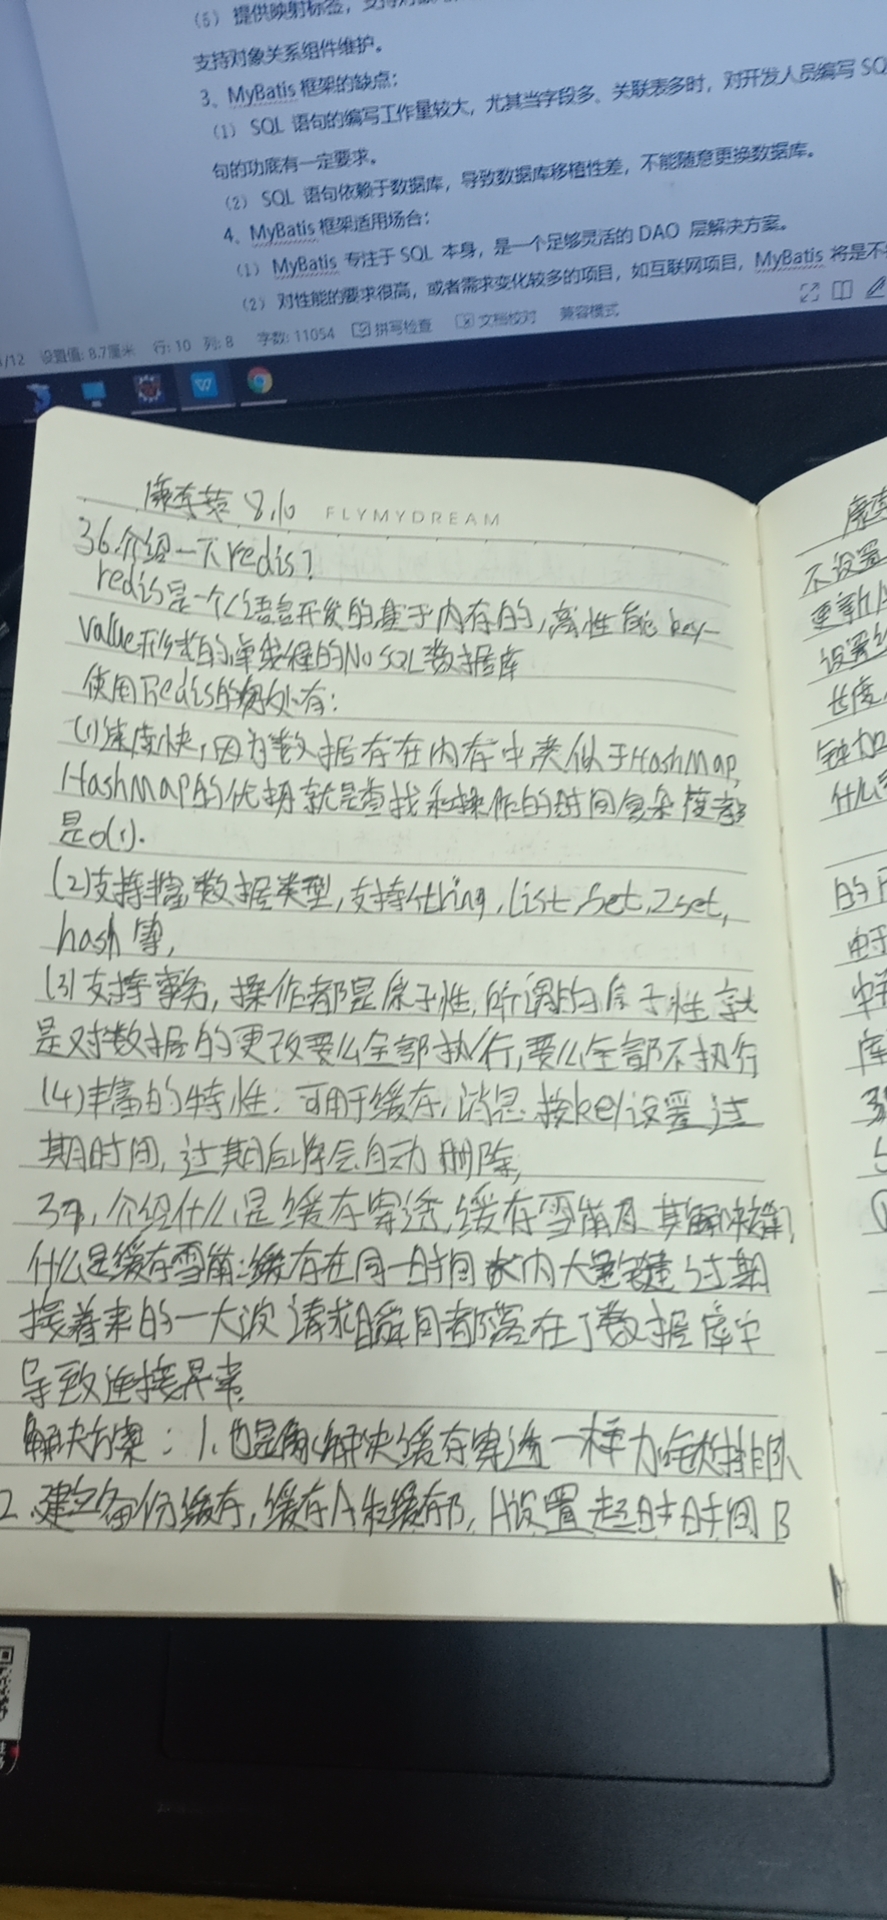 (5) 提供映射标签，支持对象
支持对象关系组件维护。
3、MyBatis 框架的缺点：
(1) SQL 语句的编写工作量较大，尤其当字段多、关联表多时，对开发人员编写 SQ
句的功底有一定要求。
(2) SQL 语句依赖于数据库，导致数据库移植性差，不能随意更换数据库。
4、MyBatis 框架适用场合：
(1) MyBatis 专注于 SQL 本身，是一个足够灵活的 DAO 层解决方案。
(2) 对性能的要求很高，或者需求变化较多的项目，如互联网项目，MyBatis 将是不
/12 设置值: 8.7厘米 行: 10 列: 8 字数: 11054 拼写检查 文档校对 兼容模式
8.10 FLYMYDREAM
36.介绍一下redis?
redis是一个C语言开发的基于内存的,高性能key-
value形式的单线程的NoSQL数据库
使用Redis的好处有:
(1)速度快,因为数据存在内存中类似于HashMap,
HashMap的优势就是查找和操作的时间复杂度都
是o(1).
(2)支持丰富数据类型,支持string,list,Set,Zset,
hash等,
(3)支持事务,操作都是原子性,所谓的原子性就
是对数据的更改要么全部执行,要么全部不执行
(4)丰富的特性:可用于缓存,消息,按key设置过
期时间,过期后将会自动删除,
37,介绍什么是缓存穿透,缓存雪崩及其解决
什么是缓存雪崩:缓存在同一时间内大量键过期
接着来的一大波请求瞬间都落在了数据库中
导致连接异常.
解决方案:1.也是像解决缓存穿透一样加锁排队
2.建立备份缓存,缓存A和缓存B,A设置超时时间B
不设置
更新A
设置
长度,
钟加
什么
的
由于
库